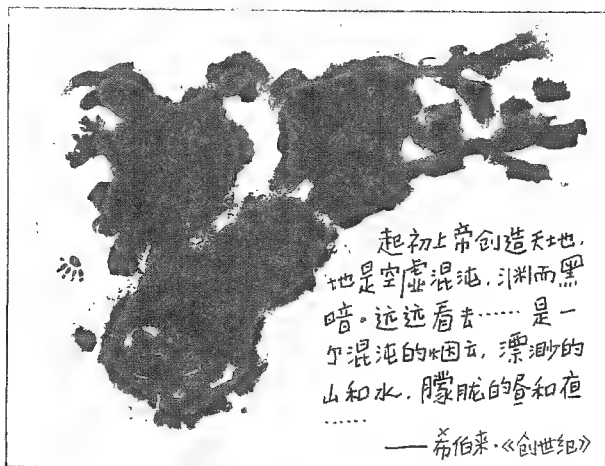 起初上帝创造天地.
地是空虚混沌.渊而黑
暗。远远看去……是一
个混沌的烟云,漂渺的
山和水.朦胧的昼和夜
……
——希伯来·《创世纪》